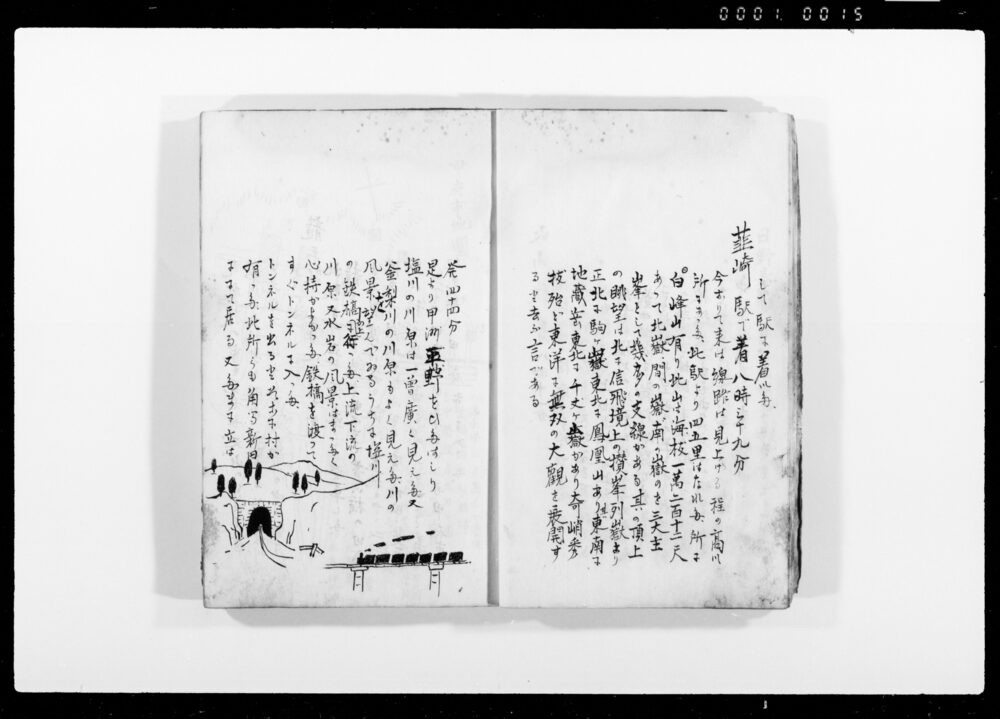 0001. 0015
して駅に着いた。
韮崎駅で着八時三十九分
今おりて来た線路は見上げる程の高い
所にあった。此駅より四五里はなれた所に
白峰山有り此山は海抜一萬二百十二尺
あって北嶽間の嶽南の嶽のを三大主
峯として幾多の支線がある其の頂上
の眺望は北は信飛境上の攅峯列嶽より
正北は駒ヶ嶽東北に鳳凰山あり其東南に
地蔵岳東北に千丈ヶ嶽があり奇峭秀
抜殆ど東洋に無双の大観を展開す
ると云ふ言である
発四十四分
是より甲洲平野をひた はしり
塩川の川原は一曽廣く見えた又
釜梨川の川原もよく見えた川の
風景を望んでゐるうちに塩川
の鉄橋 上流下流の
川原又水岩の風景はまったく
心持がよかった鉄橋を渡って
すぐトンネルに入った
トンネルを出ると 村が
有った此所らも角 新田
 居る又 立は